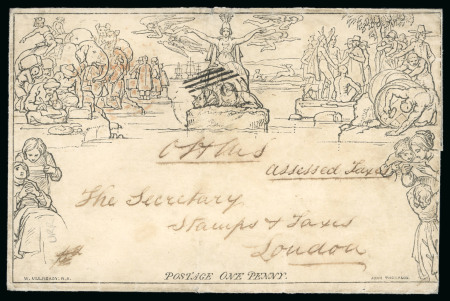 OHMS
Assessed Taxes
The Secretary
Stamps & Taxes
London
POSTAGE ONE PENNY.
W. MULREADY. R.A.
JOHN THOMPSON.